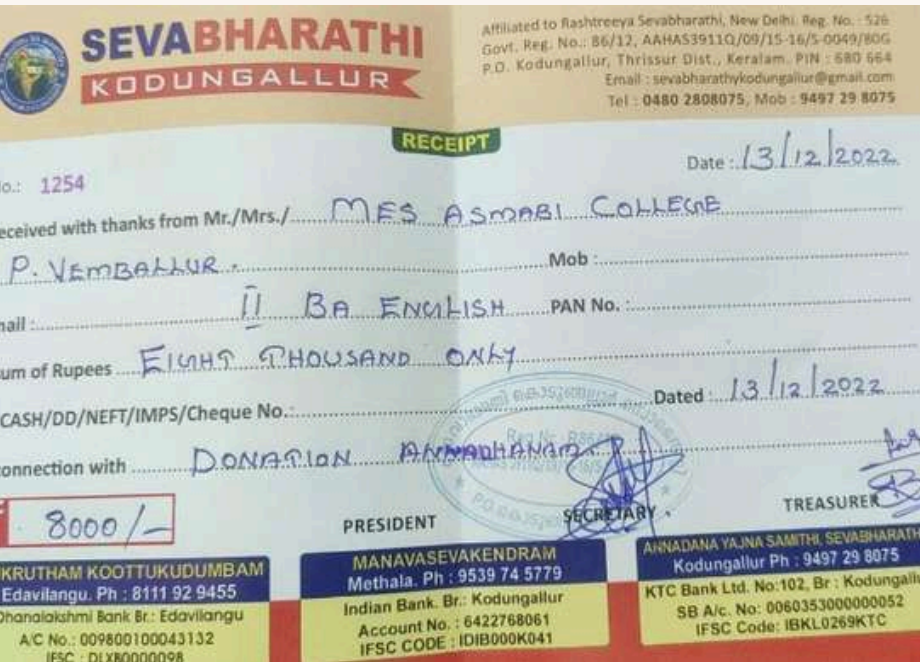 SEVABHARATHI
KODUNGALLUR
Affiliated to Rashtreeya Sevabharathi, New Delhi. Reg. No. : 526
Govt. Reg. No.: 86/12, AAHAS3911Q/09/15-16/S-0049/80G
P.O. Kodungallur, Thrissur Dist., Keralam. PIN : 680 664
Email : sevabharathykodungallur@gmail.com
Tel : 0480 2808075, Mob : 9497 29 8075
RECEIPT
No.: 1254
Date : 13/12/2022
eceived with thanks from Mr./Mrs./ MES ASMABI COLLEGE
P. VEMBALLUR.
Mob :
mail : II BA ENGLISH PAN No. :
um of Rupees EIGHT THOUSAND ONLY
CASH/DD/NEFT/IMPS/Cheque No.: Dated : 13/12/2022
onnection with DONATION ANNADHANAM
8000/-
PRESIDENT SECRETARY TREASURER
KRUTHAM KOOTTUKUDUMBAM
Edavilangu. Ph : 8111 92 9455
Dhanalakshmi Bank Br.: Edavilangu
A/C No.: 009800100043132
IFSC : DLXB0000098
MANAVASEVAKENDRAM
Methala. Ph : 9539 74 5779
Indian Bank. Br.: Kodungallur
Account No. : 6422768061
IFSC CODE : IDIB000K041
ANNADANA YAJNA SAMITHI, SEVABHARATH
Kodungallur Ph : 9497 29 8075
KTC Bank Ltd. No:102, Br : Kodungall
SB A/c. No: 0060353000000052
IFSC Code: IBKL0269KTC